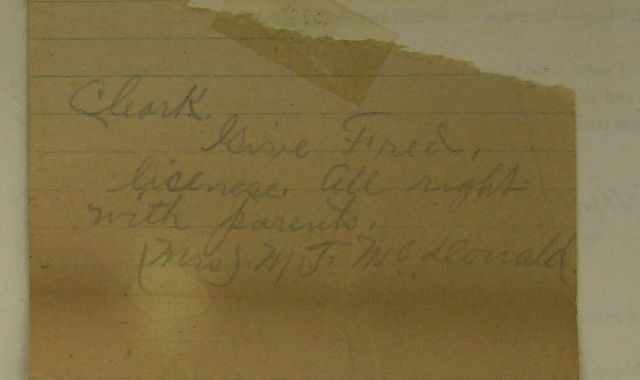 Cleark.
Give Fred,
lisenese. All right
with parents.
(Mrs) M J. McDonald